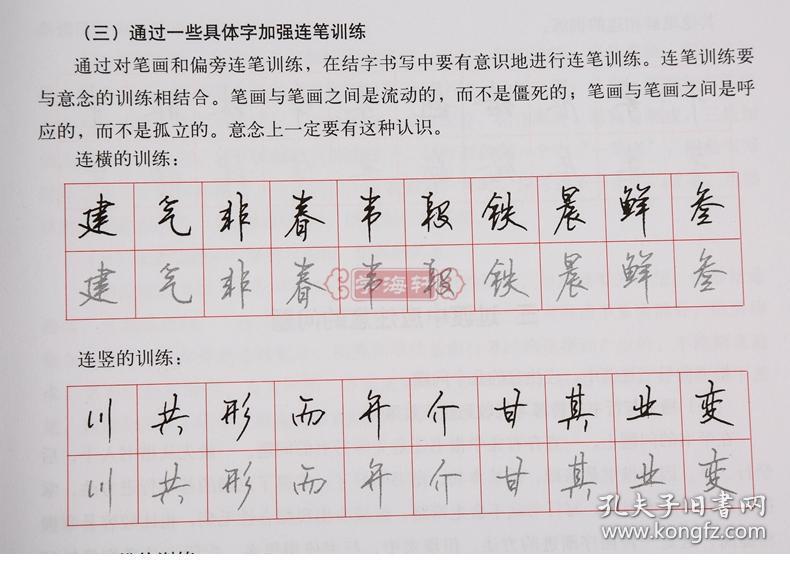 （三）通过一些具体字加强连笔训练
通过对笔画和偏旁连笔训练，在结字书写中要有意识地进行连笔训练。连笔训练要
与意念的训练相结合。笔画与笔画之间是流动的，而不是僵死的；笔画与笔画之间是呼
应的，而不是孤立的。意念上一定要有这种认识。
连横的训练：
建 气 非 春 韦 段 铁 晨 鲜 叁
建 气 非 春 韦 段 铁 晨 鲜 叁
学海轩
连竖的训练：
川 共 形 而 并 介 甘 其 业 变
川 共 形 而 并 介 甘 其 业 变
孔夫子旧书网
www.kongfz.com